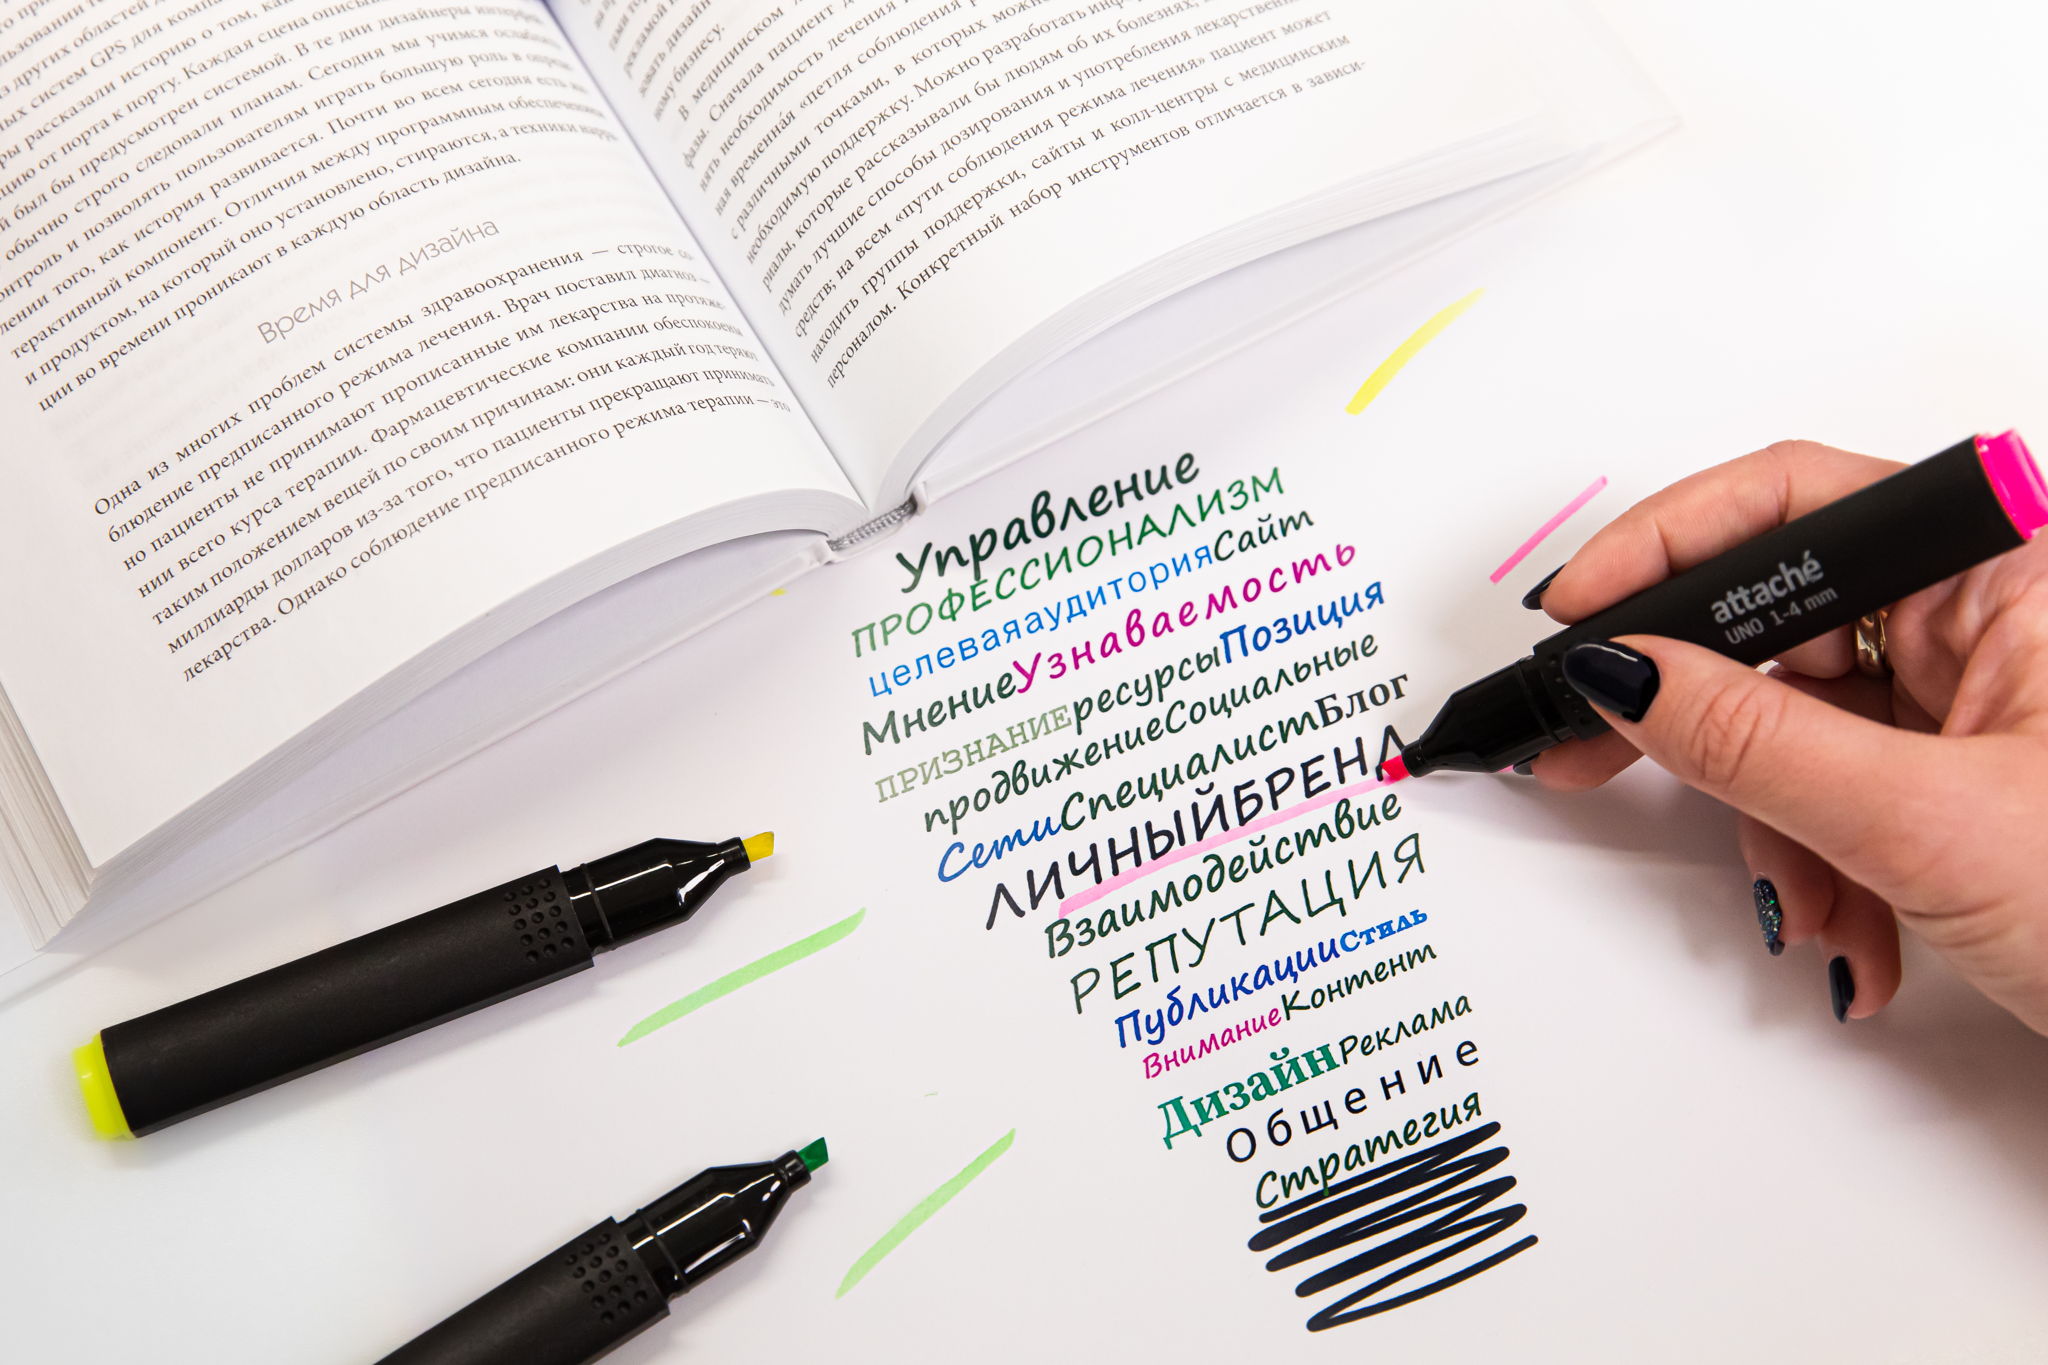 из других областей
ных систем GPS для компа
ры рассказали историю о том, как
цию от порта к порту. Каждая сцена описы
й был бы предусмотрен системой. В те дни дизайнеры интерфей
обычно строго следовали планам. Сегодня мы учимся ослаблять
онтроль и позволять пользователям играть большую роль в опре
лении того, как история развивается. Почти во всем сегодня есть ин
терактивный компонент. Отличия между программным обеспечением
и продуктом, на который оно установлено, стираются, а техники нарра
ции во времени проникают в каждую область дизайна.
Время для дизайна
Одна из многих проблем системы здравоохранения — строгое со-
блюдение предписанного режима лечения. Врач поставил диагноз —
но пациенты не принимают прописанные им лекарства на протяже-
нии всего курса терапии. Фармацевтические компании обеспокоены
таким положением вещей по своим причинам: они каждый год теряют
миллиарды долларов из-за того, что пациенты прекращают принимать
лекарства. Однако соблюдение предписанного режима терапии — это
рекламой
зовать дизайн
кому бизнесу.
В медицинском
фазы. Сначала пациент
нять необходимость лечения
ная временна́я «петля соблюдения
с различными точками, в которых можно
необходимую поддержку. Можно разработать инфор
риалы, которые рассказывали бы людям об их болезнях,
думать лучшие способы дозирования и употребления лекарственн
средств; на всем «пути соблюдения режима лечения» пациент может
находить группы поддержки, сайты и колл-центры с медицинским
персоналом. Конкретный набор инструментов отличается в зависи-
Управление
ПРОФЕССИОНАЛИЗМ
целеваяаудиторияСайт
МнениеУзнаваемость
ПРИЗНАНИЕресурсыПозиция
продвижениеСоциальные
СетиСпециалистБлог
ЛИЧНЫЙБРЕНД
Взаимодействие
РЕПУТАЦИЯ
ПубликацииСтиль
ВниманиеКонтент
ДизайнРеклама
Общение
Стратегия
attaché
UNO 1-4 mm